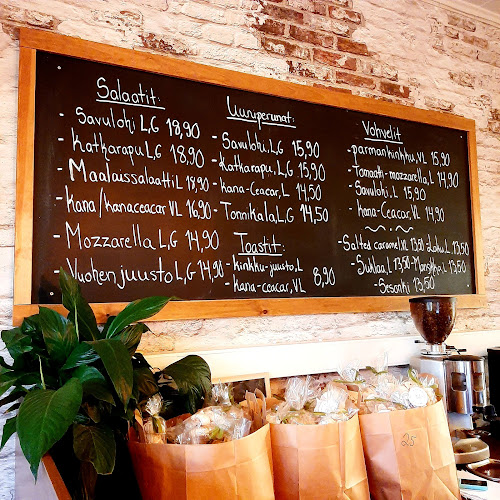 Salaatit:
- Savulohi L,G 18,90
- Katkarapu L,G 18,90
- Maalaissalaatti L 18,90
- Kana/kanaceacar VL 16,90
- Mozzarella L,G 14,90
- Vuohenjuusto L,G 14,90
Uuniperunat:
- Savulohi, L,G 15,90
- Katkarapu, L,G 15,90
- Kana-Ceacar, L 14,50
- Tonnikala, L,G 14,50
Toastit:
- kinkku-juusto, L
- kana-ceacar, VL 8,90
Vohvelit
- parmankinkku, VL 15,90
- Tomaatti-mozzarella, L 14,90
- Savulohi, L 15,90
- kana-Ceacar, VL 14,90
- Salted caramel, VL 13,50 Laku, L 13,50
- Suklaa, L 13,50 - Mansikka, L 13,50
- Sesonki 13,50
25